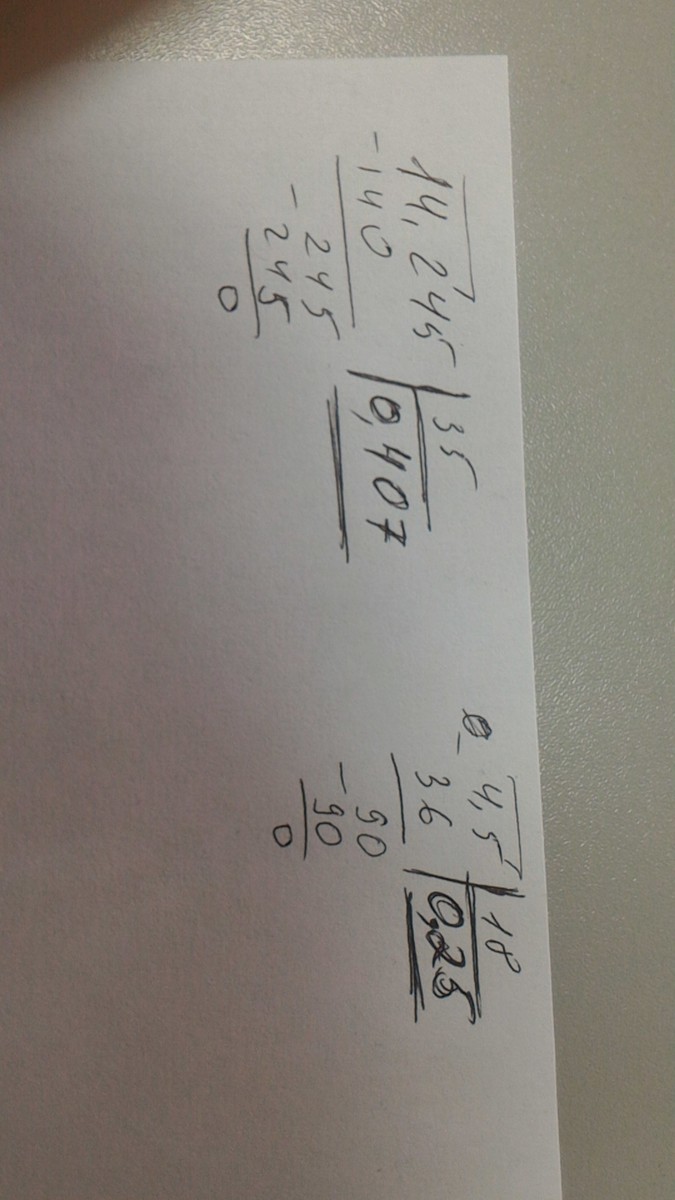 14,245 | 35
-140 | 0,407
-245
245
0
4,5 | 18
-36 | 0,25
-90
90
0